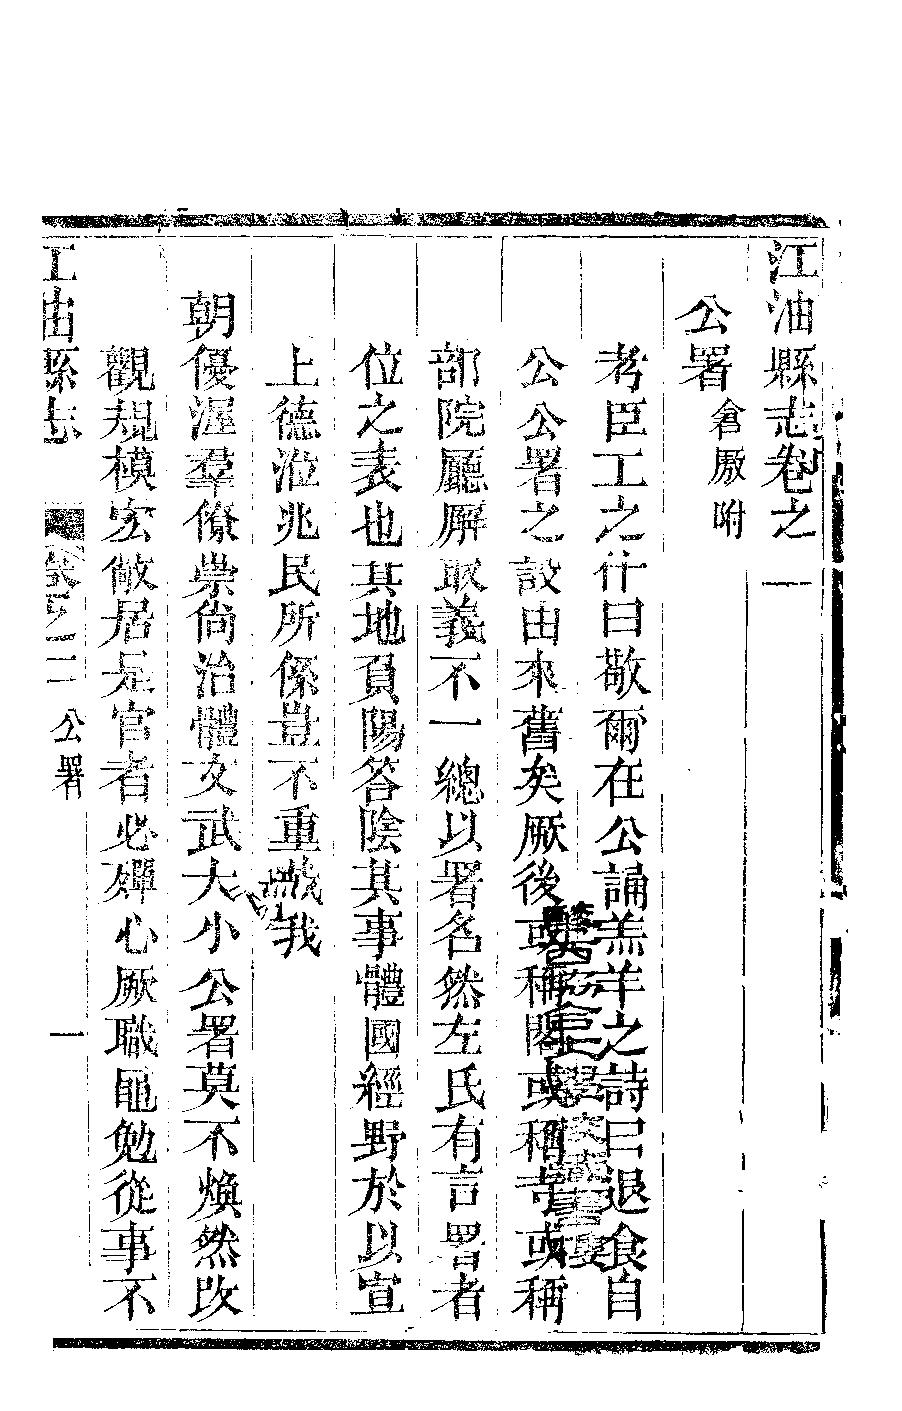 江油縣志卷之二
公署倉厫附
考臣工之什曰敬爾在公誦羔羊之詩曰退食自
公公署之設由來舊矣厥後或稱閣或稱寺或稱
部院廳廨取義不一總以署名然左氏有言署者
位之表也其地負陽答陰其事體國經野於以宣
上德涖兆民所係豈不重哉我
朝優渥羣僚崇尚治體文武大小公署莫不煥然改
觀規模宏敞居是官者必殫心厥職黽勉從事不
江油縣志
卷之二 公署
一